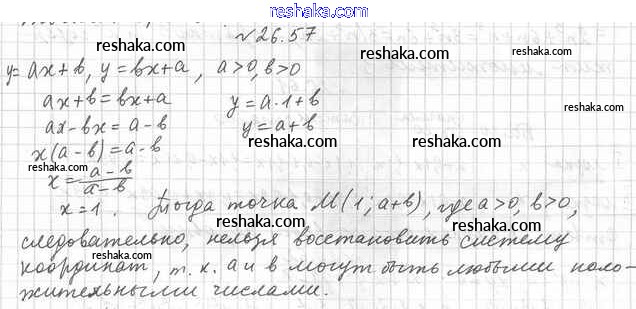 reshaka.com
№ 26.57
y = ax + b, y = bx + a, a > 0, b > 0
ax + b = bx + a    y = a · 1 + b
ax - bx = a - b    y = a + b
x(a - b) = a - b
x = (a - b)/(a - b)
x = 1. Тогда точка M(1; a+b), где a > 0, b > 0,
следовательно, нельзя восстановить систему
координат, т. к. a и b могут быть любыми поло-
жительными числами.
reshaka.com
reshaka.com
reshaka.com
reshaka.com
reshaka.com
reshaka.com
reshaka.com
reshaka.com
reshaka.com
reshaka.com
reshaka.com
reshaka.com